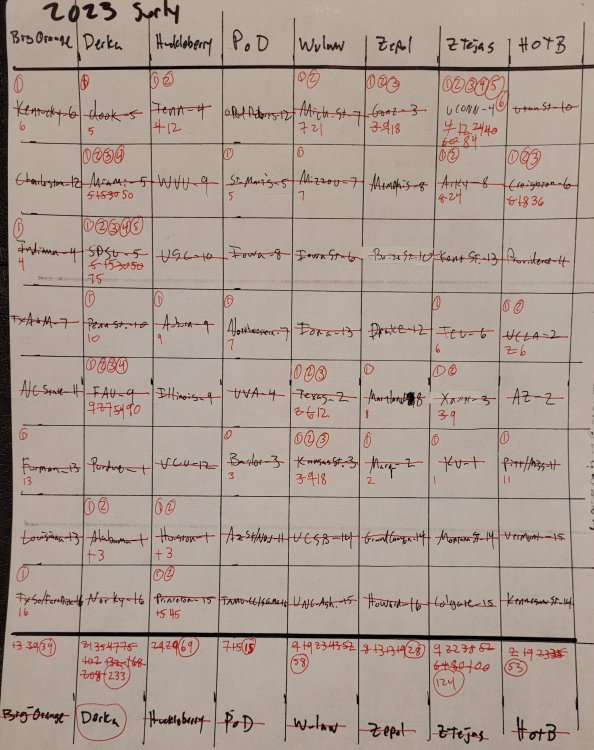 2023 Surly
Big Orange Derka Huckleberry PoD Wulaw Zepol ZTejas HOTB
① ① ①② ①② ①②③ ①②③④⑤⑥
Kentucky-6 dook-5 Tenn-4 Mich. St-7 Gonz-3 UCONN-4 Utah St-10
6 5 4 12 7 21 3 9 18 4 12 24 40
60 84
①②③④ ① ① ①② ①②③
Charleston-12 Miami-5 WVU-9 St. Mary's-5 Mizzou-7 Memphis-8 Arky-8 Creighton-6
5 15 30 50 5 7 8 24 6 18 36
① ①②③④⑤
Indiana-4 SDSU-5 USC-10 Iowa-8 Iowa St-6 Boise St-10 Kent St.-13 Providence-11
4 5 15 30 50
75
① ① ① ① ①②
TxA&M-7 Penn St.-10 Auburn-9 Northwestern-7 Iona-13 Drake-12 TCU-6 UCLA-2
10 9 7 6 2 6
①②③④ ①②③ ① ①②
NC State-11 FAU-9 Illinois-9 UVA-4 Texas-2 Maryland-8 Xavier-3 AZ-2
9 27 54 90 2 6 12 8 3 9
① ① ①②③ ① ① ①
Furman-13 Purdue-1 VCU-12 Baylor-3 Kansas St.-3 Marq-2 KU-1 Pitt/Miss-11
13 3 3 9 18 2 1 11
①② ①②
Louisiana-13 Alabama-1 Houston-1 AzSt/Nev-11 UCSB-14 Grand Canyon-14 Montana St-14 Vermont-15
+3 +3
① ①②
TxSo/FareDick-16 Norky-16 Princeton-15 UNC Ash.-15 Howard-16 Colgate-15 Kennesaw St-14
16 15 45
Big Orange Derka Huckleberry PoD Wulaw Zepol ZTejas HOTB